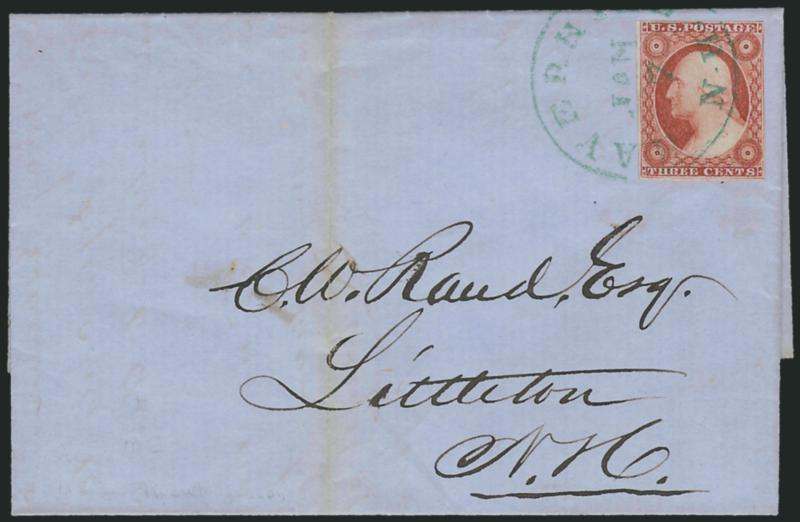 U.S. POSTAGE
THREE CENTS
JAN
N.H.
C.W. Rand, Esq.
Littleton
N.H.